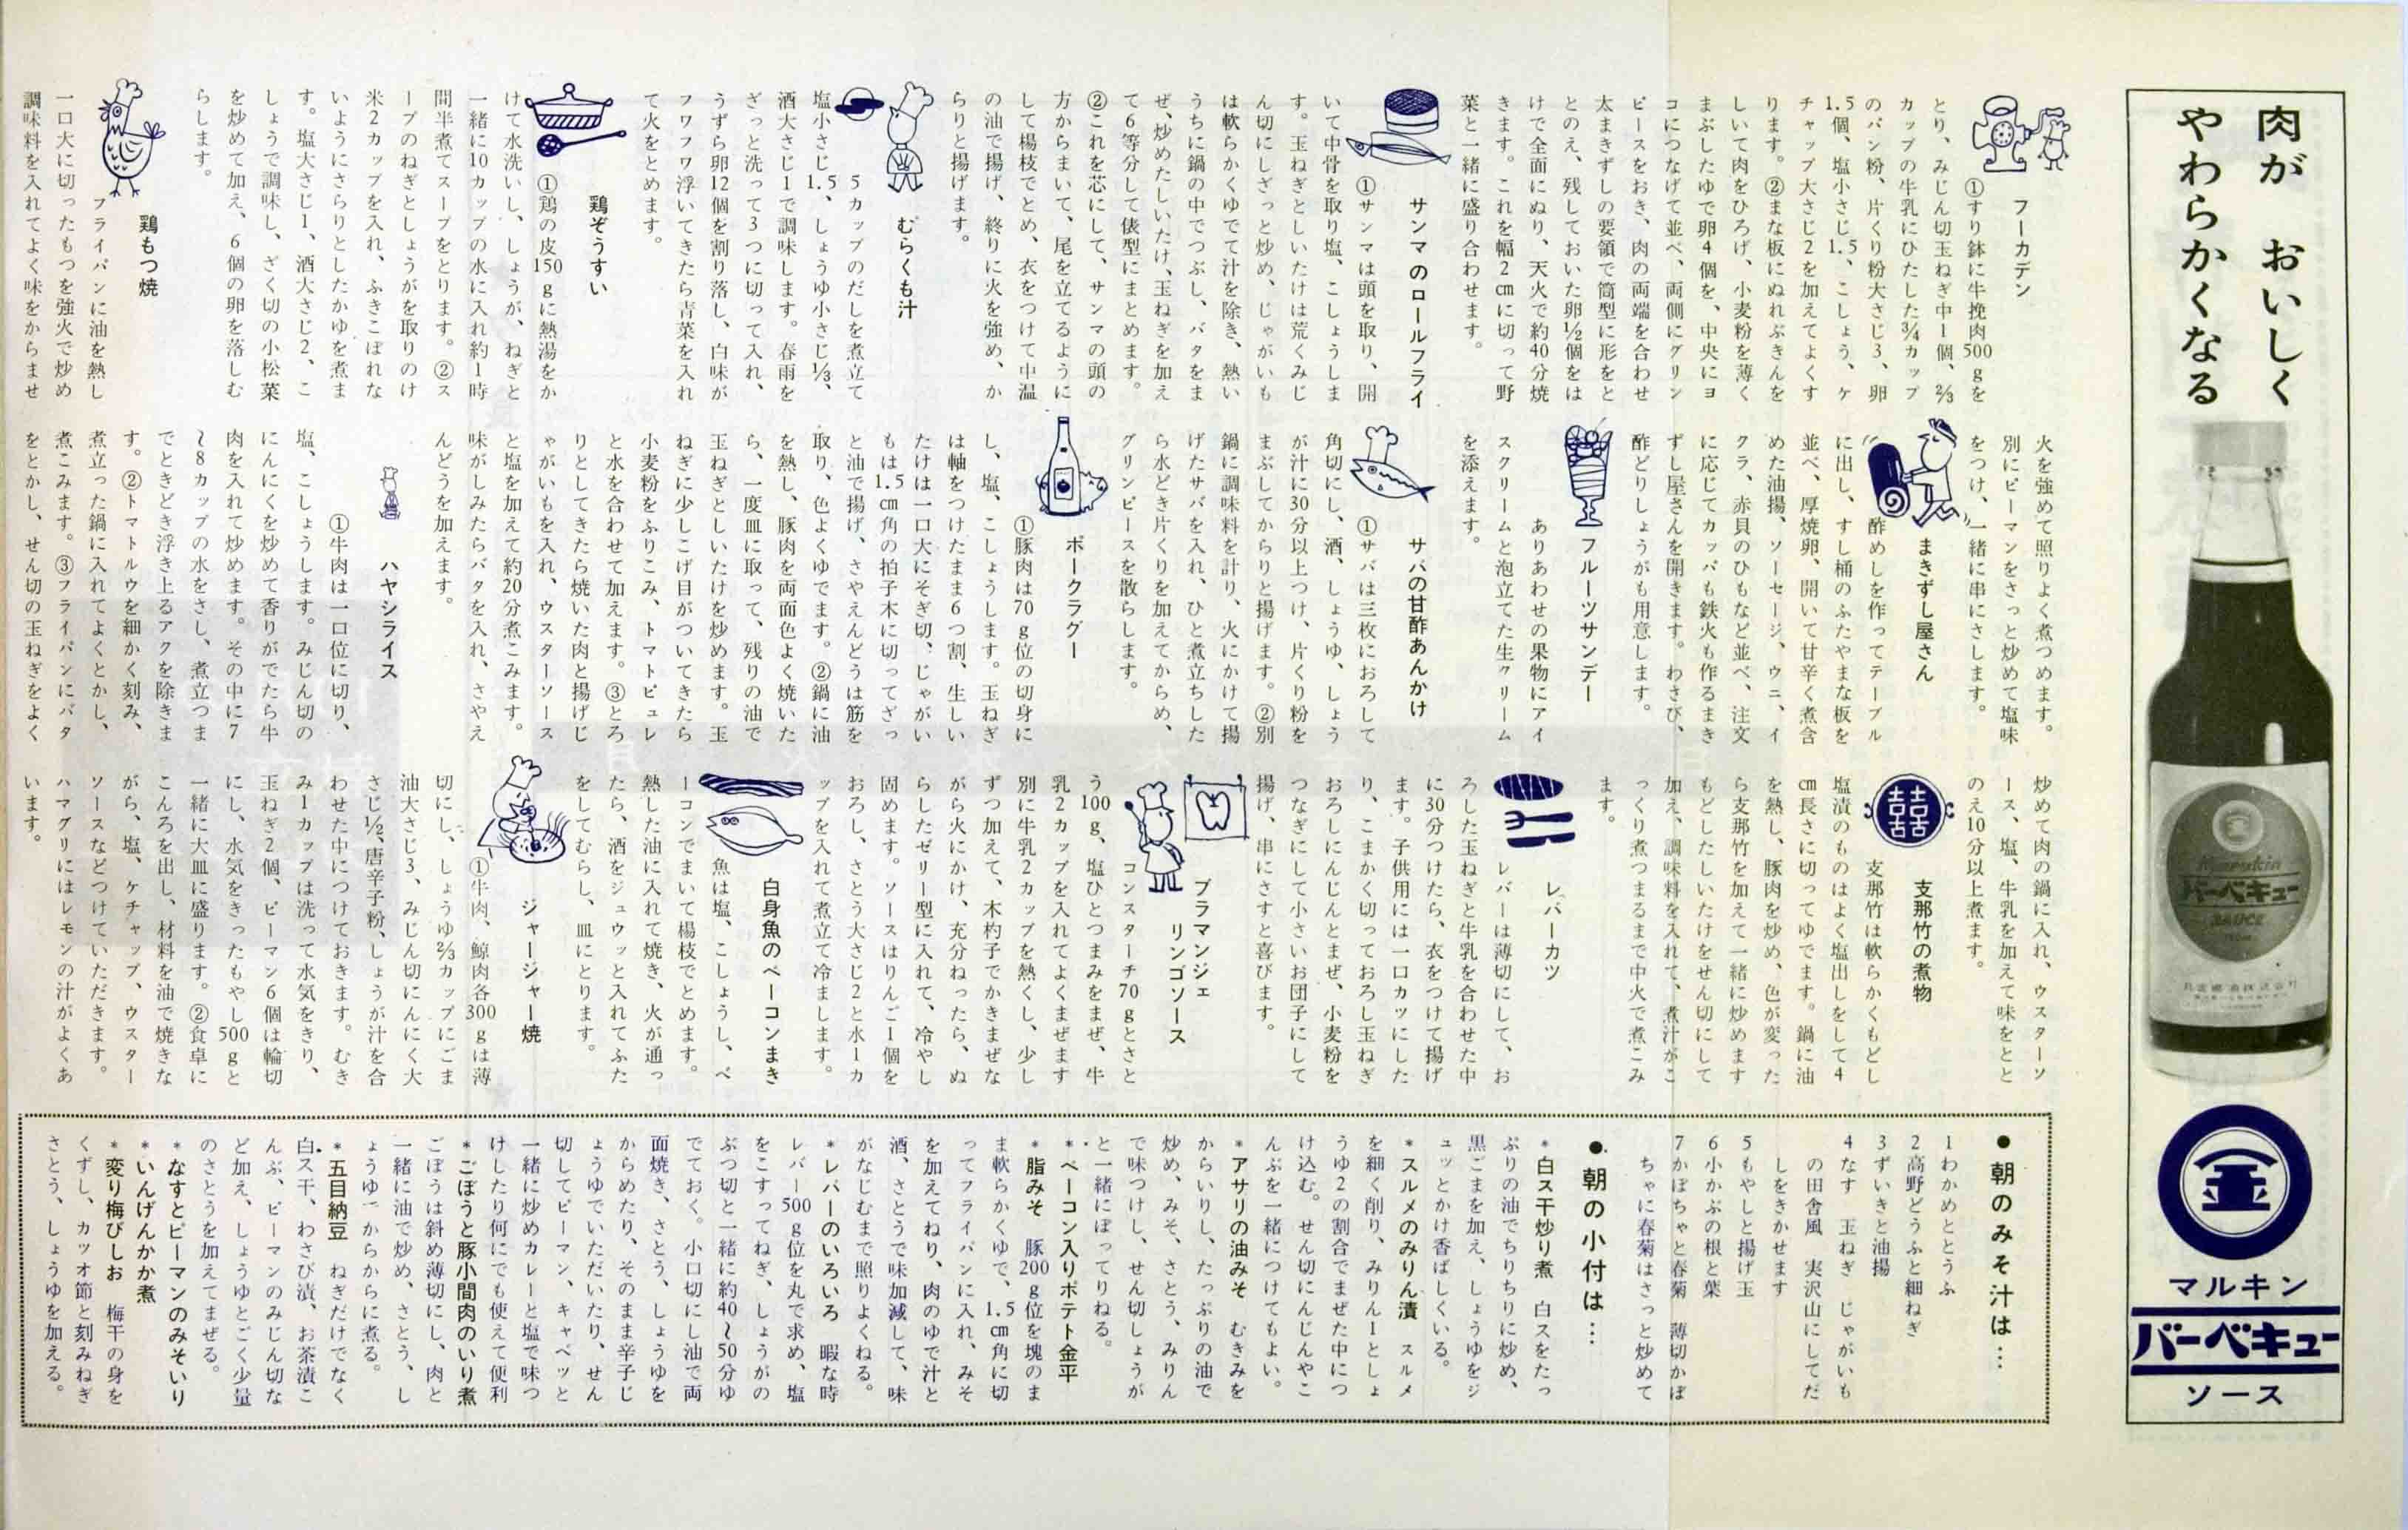 肉が おいしく
やわらかくなる
マルキン
バーベキュー
ソース
フーカデン
①すり鉢に牛挽肉500gを
とり、みじん切玉ねぎ中1個、⅔
カップの牛乳にひたした¾カップ
のパン粉、片くり粉大さじ3、卵
1.5個、塩小さじ1.5、こしょう、ケ
チャップ大さじ2を加えてよくす
ります。②まな板にぬれぶきんを
しいて肉をひろげ、小麦粉を薄く
まぶしたゆで卵4個を、中央にヨ
コにつなげて並べ、両側にグリン
ピースをおき、肉の両端を合わせ
太まきずしの要領で筒型に形をと
とのえ、残しておいた卵½個をは
けで全面にぬり、天火で約40分焼
きます。これを幅2cmに切って野
菜と一緒に盛り合わせます。
サンマのロールフライ
①サンマは頭を取り、開
いて中骨を取り塩、こしょうしま
す。玉ねぎとしいたけは荒くみじ
ん切にしざっと炒め、じゃがいも
は軟らかくゆでて汁を除き、熱い
うちに鍋の中でつぶし、バタをま
ぜ、炒めたしいたけ、玉ねぎを加え
て6等分して俵型にまとめます。
②これを芯にして、サンマの頭の
方からまいて、尾を立てるように
して楊枝でとめ、衣をつけて中温
の油で揚げ、終りに火を強め、か
らりと揚げます。
むらくも汁
5カップのだしを煮立て
塩小さじ1.5、しょうゆ小さじ⅓、
酒大さじ1で調味します。春雨を
ざっと洗って3つに切って入れ、
うずら卵12個を割り落し、白味が
フワフワ浮いてきたら青菜を入れ
て火をとめます。
鶏ぞうすい
①鶏の皮150gに熱湯をか
けて水洗いし、しょうが、ねぎと
一緒に10カップの水に入れ約1時
間半煮てスープをとります。②ス
ープのねぎとしょうがを取りのけ
米2カップを入れ、ふきこぼれな
いようにさらりとしたかゆを煮ま
す。塩大さじ1、酒大さじ2、こ
しょうで調味し、ざく切の小松菜
を炒めて加え、6個の卵を落しむ
らします。
鶏もつ焼
フライパンに油を熱し
一口大に切ったもつを強火で炒め
調味料を入れてよく味をからませ
火を強めて照りよく煮つめます。
別にピーマンをさっと炒めて塩味
をつけ、一緒に串にさします。
まきずし屋さん
酢めしを作ってテーブル
に出し、すし桶のふたやまな板を
並べ、厚焼卵、開いて甘辛く煮含
めた油揚、ソーセージ、ウニ、イ
クラ、赤貝のひもなど並べ、注文
に応じてカッパも鉄火も作るまき
ずし屋さんを開きます。わさび、
酢どりしょうがも用意します。
フルーツサンデー
ありあわせの果物にアイ
スクリームと泡立てた生クリーム
を添えます。
サバの甘酢あんかけ
①サバは三枚におろして
角切にし、酒、しょうゆ、しょう
が汁に30分以上つけ、片くり粉を
まぶしてからりと揚げます。②別
鍋に調味料を計り、火にかけて揚
げたサバを入れ、ひと煮立ちした
ら水どき片くりを加えてからめ、
グリンピースを散らします。
ポークラグー
①豚肉は70g位の切身に
し、塩、こしょうします。玉ねぎ
は軸をつけたまま6つ割、生しい
たけは一口大にそぎ切、じゃがい
もは1.5cm角の拍子木に切ってざっ
と油で揚げ、さやえんどうは筋を
取り、色よくゆでます。②鍋に油
を熱し、豚肉を両面色よく焼いた
ら、一度皿に取って、残りの油で
玉ねぎとしいたけを炒めます。玉
ねぎに少しこげ目がついてきたら
小麦粉をふりこみ、トマトピュレ
と水を合わせて加えます。③とろ
りとしてきたら焼いた肉と揚げじ
ゃがいもを入れ、ウスターソース
と塩を加えて約20分煮こみます。
味がしみたらバタを入れ、さやえ
んどうを加えます。
ハヤシライス
①牛肉は一口位に切り、
塩、こしょうします。みじん切の
にんにくを炒めて香りがでたら牛
肉を入れて炒めます。その中に7
〜8カップの水をさし、煮立つま
でときどき浮き上るアクを除きま
す。②トマトルウを細かく刻み、
煮立った鍋に入れてよくとかし、
煮こみます。③フライパンにバタ
をとかし、せん切の玉ねぎをよく
炒めて肉の鍋に入れ、ウスターソ
ース、塩、牛乳を加えて味をとと
のえ10分以上煮ます。
支那竹の煮物
支那竹は軟らかくもどし
塩漬のものはよく塩出しをして4
cm長さに切ってゆでます。鍋に油
を熱し、豚肉を炒め、色が変った
ら支那竹を加えて一緒に炒めます
もどしたしいたけをせん切にして
加え、調味料を入れて、煮汁がこ
っくり煮つまるまで中火で煮こみ
ます。
レバーカツ
レバーは薄切にして、お
ろした玉ねぎと牛乳を合わせた中
に30分つけたら、衣をつけて揚げ
ます。子供用には一口カツにした
り、こまかく切っておろし玉ねぎ
おろしにんじんとまぜ、小麦粉を
つなぎにして小さいお団子にして
揚げ、串にさすと喜びます。
ブラマンジェ
リンゴソース
コンスターチ70gとさと
う100g、塩ひとつまみをまぜ、牛
乳2カップを入れてよくまぜます
別に牛乳2カップを熱くし、少し
ずつ加えて、木杓子でかきまぜな
がら火にかけ、充分ねったら、ぬ
らしたゼリー型に入れて、冷やし
固めます。ソースはりんご1個を
おろし、さとう大さじ2と水1カ
ップを入れて煮立て冷まします。
白身魚のベーコンまき
魚は塩、こしょうし、ベ
ーコンでまいて楊枝でとめます。
熱した油に入れて焼き、火が通っ
たら、酒をジュウッと入れてふた
をしてむらし、皿にとります。
ジャージャー焼
①牛肉、鯨肉各300gは薄
切にし、しょうゆ⅔カップにごま
油大さじ3、みじん切にんにく大
さじ½、唐辛子粉、しょうが汁を合
わせた中につけておきます。むき
み1カップは洗って水気をきり、
玉ねぎ2個、ピーマン6個は輪切
にし、水気をきったもやし500gと
一緒に大皿に盛ります。②食卓に
こんろを出し、材料を油で焼きな
がら、塩、ケチャップ、ウスター
ソースなどつけていただきます。
ハマグリにはレモンの汁がよくあ
います。
●朝のみそ汁は…
1わかめととうふ
2高野どうふと細ねぎ
3ずいきと油揚
4なす 玉ねぎ じゃがいも
の田舎風 実沢山にしてだ
しをきかせます
5もやしと揚げ玉
6小かぶの根と葉
7かぼちゃと春菊 薄切かぼ
ちゃに春菊はさっと炒めて
●朝の小付は…
*白ス干炒り煮 白スをたっ
ぷりの油でちりちりに炒め、
黒ごまを加え、しょうゆをジ
ュッとかけ香ばしくいる。
*スルメのみりん漬 スルメ
を細く削り、みりん1としょ
うゆ2の割合でまぜた中につ
け込む。せん切にんじんやこ
んぶを一緒につけてもよい。
*アサリの油みそ むきみを
からいりし、たっぷりの油で
炒め、みそ、さとう、みりん
で味つけし、せん切しょうが
と一緒にぽってりねる。
*ベーコン入りポテト金平
*脂みそ 豚200g位を塊のま
ま軟らかくゆで、1.5cm角に切
ってフライパンに入れ、みそ
を加えてねり、肉のゆで汁と
酒、さとうで味加減して、味
がなじむまで照りよくねる。
*レバーのいろいろ 暇な時
レバー500g位を丸で求め、塩
をこすってねぎ、しょうがの
ぶつ切と一緒に約40〜50分ゆ
でておく。小口切にし油で両
面焼き、さとう、しょうゆを
からめたり、そのまま辛子じ
ょうゆでいただいたり、せん
切してピーマン、キャベッと
一緒に炒めカレーと塩で味つ
けしたり何にでも使えて便利
*ごぼうと豚小間肉のいり煮
ごぼうは斜め薄切にし、肉と
一緒に油で炒め、さとう、し
ょうゆでからからに煮る。
*五目納豆 ねぎだけでなく
白ス干、わさび漬、お茶漬こ
んぶ、ピーマンのみじん切な
ど加え、しょうゆとごく少量
のさとうを加えてまぜる。
*なすとピーマンのみそいり
*いんげんかか煮
*変り梅びしお 梅干の身を
くずし、カツオ節と刻みねぎ
さとう、しょうゆを加える。
Marukin
バーベキュー
SAUCE